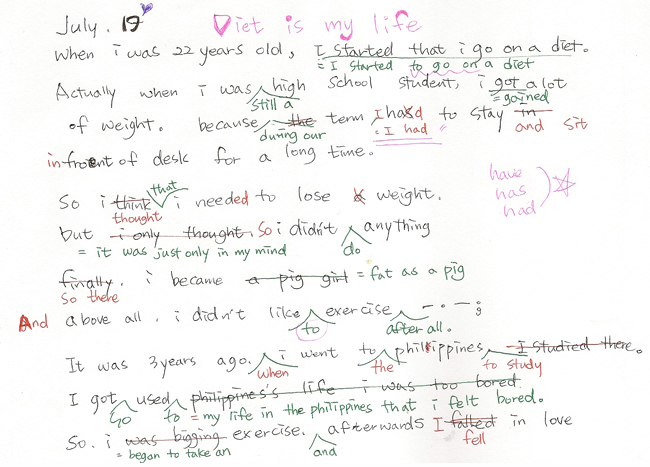 July. 19 Diet is my life
When i was 22 years old, I started that i go on a diet.
= I started to go on a diet
Actually when i was high school student, i got a lot
still a = gained
of weight. because the term I had to stay in
during our = I had and sit
in front of desk for a long time.
have
has
had
that
So i think i needed to lose weight.
thought
but i only thought. So i didn't anything
= it was just only in my mind do
finally. i became a pig girl = fat as a pig
So there
And above all. i didn't like exercise
to after all.
It was 3 years ago. i went to philippines I studied there.
when the to study
I got used philippines's life i was too bored.
so to = my life in the philippines that i felt bored.
So. i was bigging exercise. afterwards I falled in love
= began to take an and fell